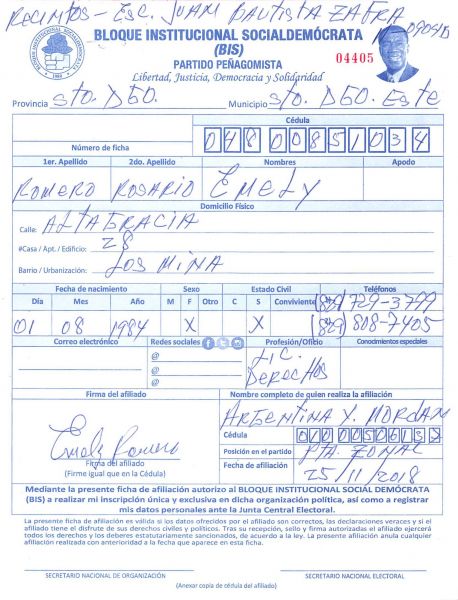 Recintos - Esc. Juan Bautista Zafra
BLOQUE INSTITUCIONAL SOCIALDEMÓCRATA
(BIS)
PARTIDO PEÑAGOMISTA
04405
Libertad, Justicia, Democracia y Solidaridad
Provincia Sto. Dgo. Municipio Sto. Dgo. Este
Cédula
Número de ficha
048 0085103 4
1er. Apellido 2do. Apellido Nombres Apodo
Romero Rosario Emely
Domicilio Físico
Calle: Altagracia
#Casa / Apt. / Edificio: 28
Barrio / Urbanización: Los Mina
Fecha de nacimiento Sexo Estado Civil Teléfonos
Día Mes Año M F Otro C S Conviviente (829) 729-3799
01 08 1984 X X (829) 808-7405
Correo electrónico Redes sociales Profesión/Oficio Conocimientos especiales
@ Lic.
@ Derechos
@
Firma del afiliado Nombre completo de quien realiza la afiliación
Argentina Y. Mordan
Emely Romero Cédula
Firma del afiliado Posición en el partido Pta. Zonal
(Firme igual que en la Cédula) Fecha de afiliación 25/11/2018
Mediante la presente ficha de afiliación autorizo al BLOQUE INSTITUCIONAL SOCIAL DEMÓCRATA
(BIS) a realizar mi inscripción única y exclusiva en dicha organización política, así como a registrar
mis datos personales ante la Junta Central Electoral.
La presente ficha de afiliación es válida si los datos ofrecidos por el afiliado son correctos, las declaraciones veraces y si el
afiliado tiene el disfrute de sus derechos civiles y políticos. Tras su recepción, sello y firma autorizados el afiliado ejercerá
todos los derechos y los deberes estatutariamente sancionados, de acuerdo a la ley. La presente afiliación anula cualquier
afiliación realizada con anterioridad a la fecha que aparece en esta ficha.
SECRETARIO NACIONAL DE ORGANIZACIÓN SECRETARIO NACIONAL ELECTORAL
(Anexar copia de cédula del afiliado)